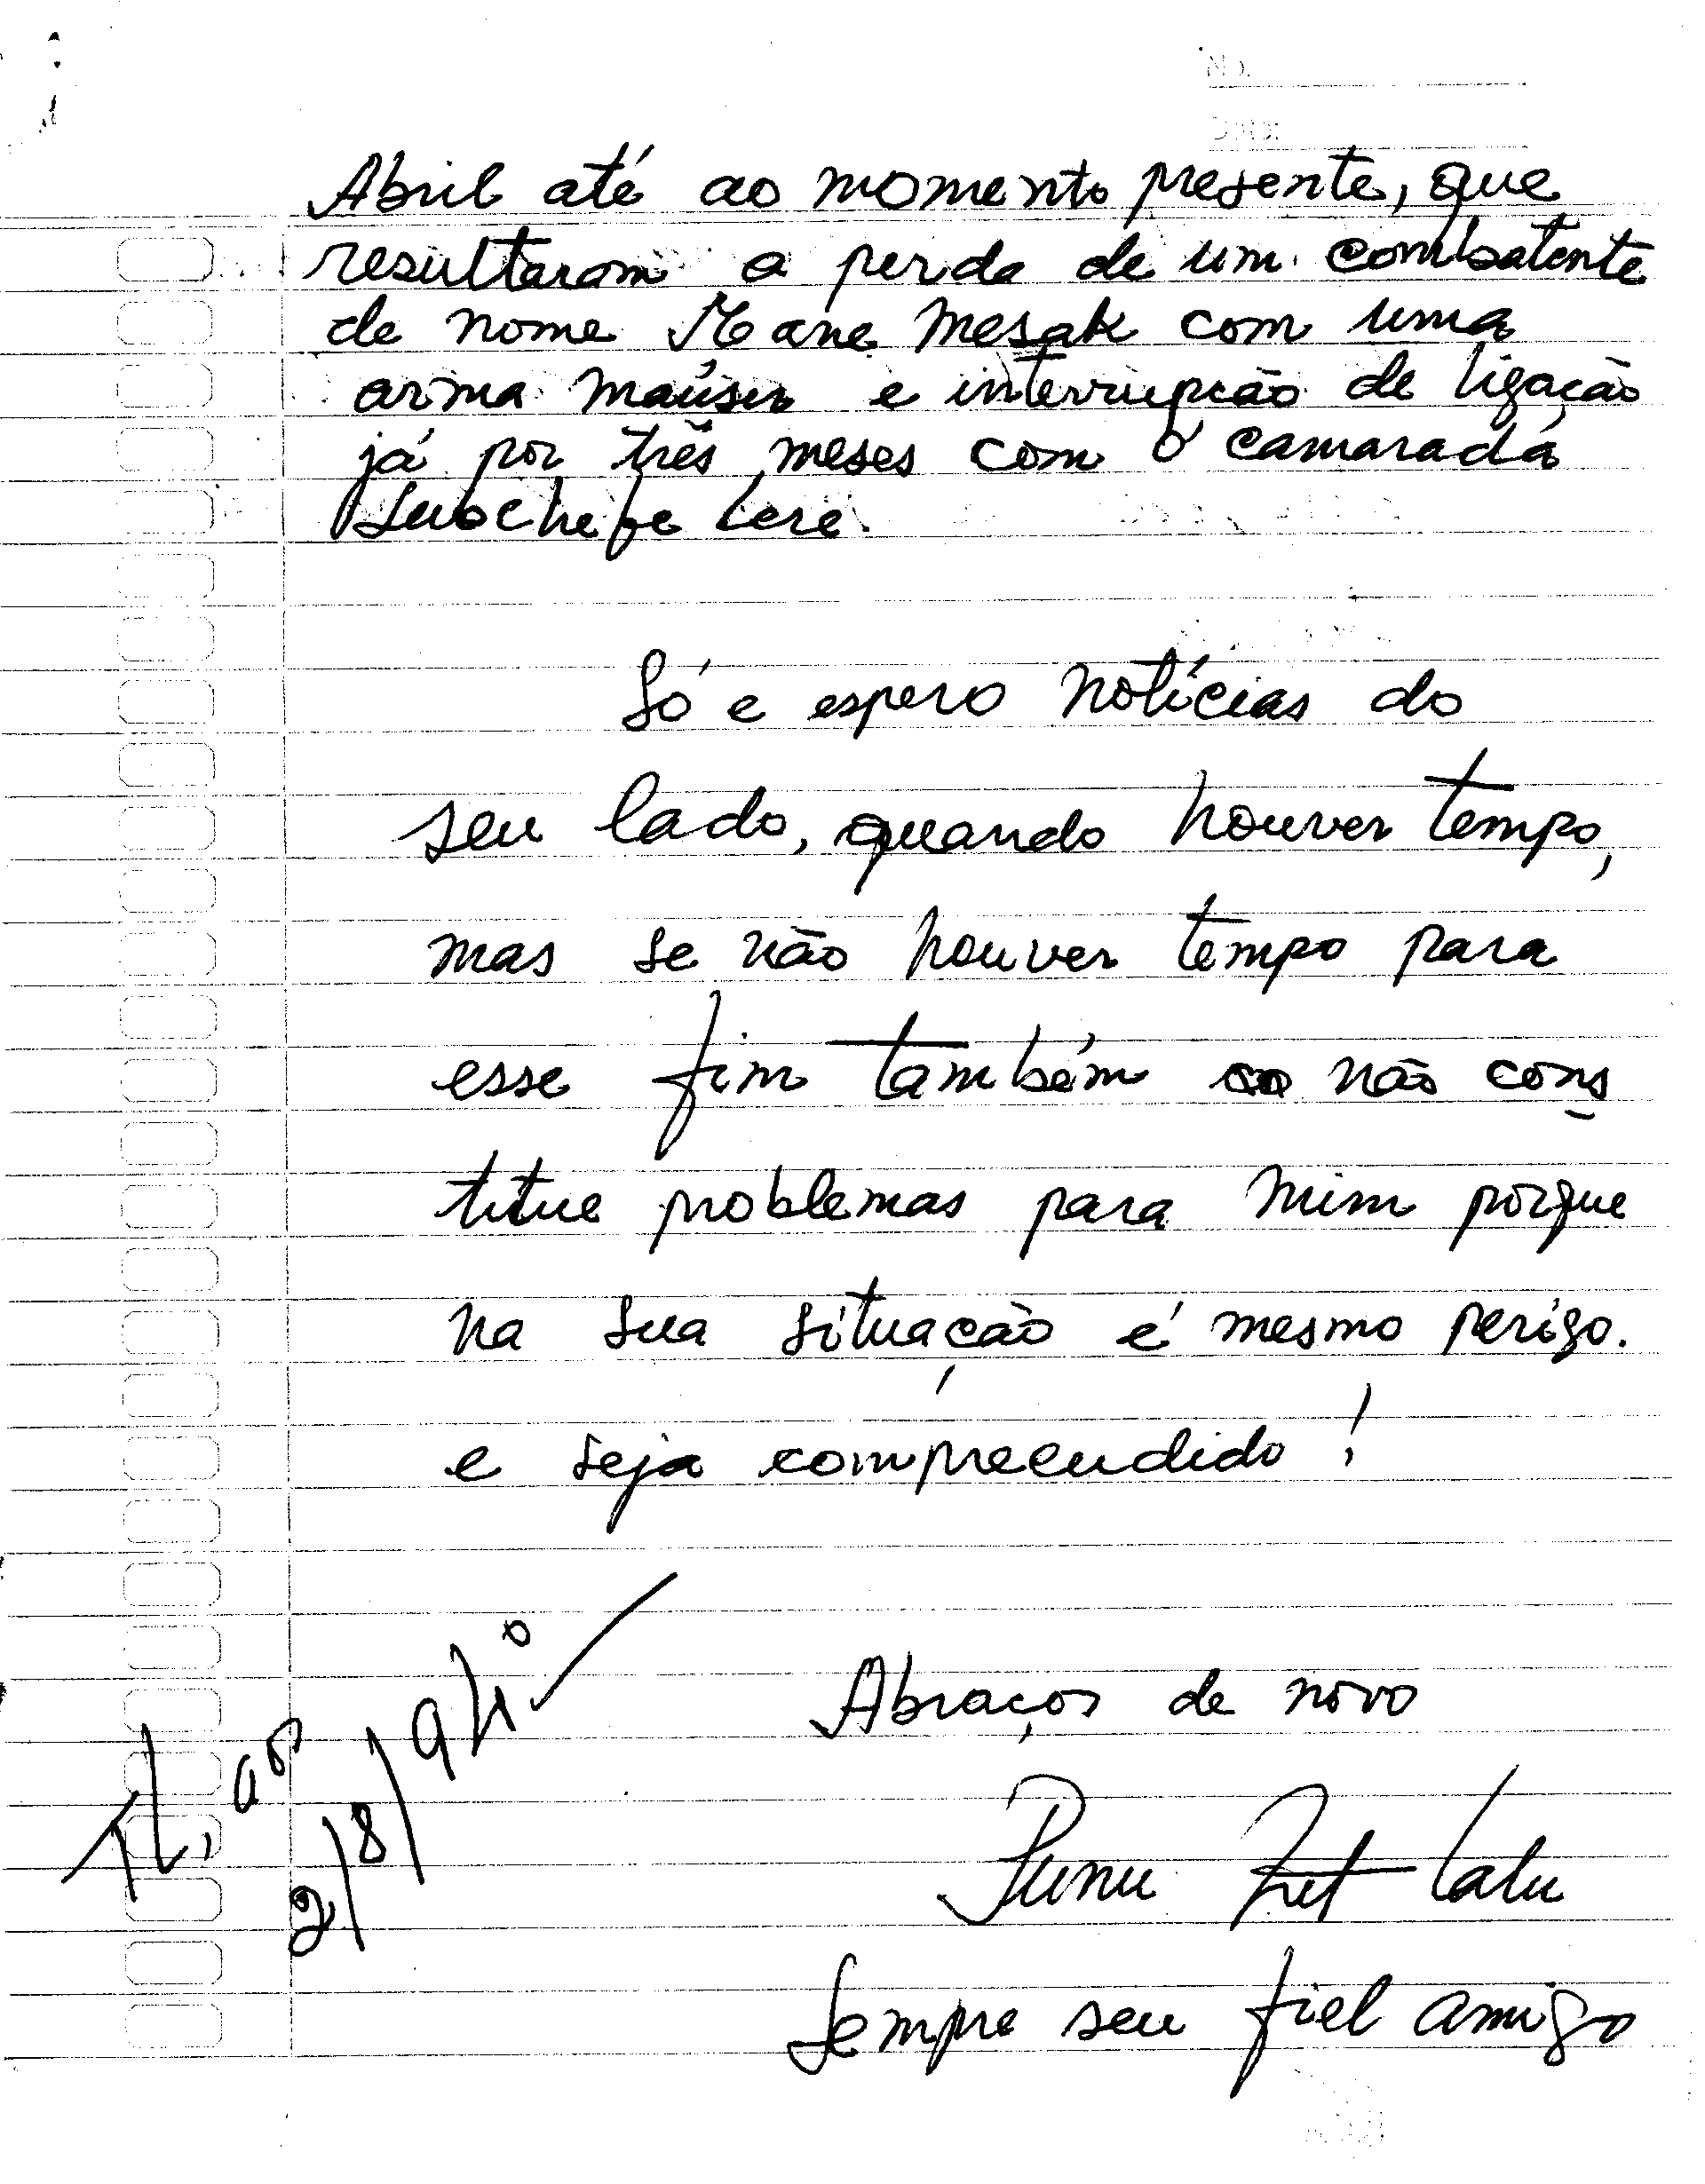 Abril até ao momento presente, que
resultaram a perda de um combatente
de nome Mane Mesak com uma
arma maúser e interrupção de ligação
já por três meses com o camarada
Subchefe Lere.
Só e espero notícias do
seu lado, quando houver tempo,
mas se não houver tempo para
esse fim também não cons
titue problemas para mim porque
na sua situação é mesmo perigo.
e seja compreendido!
Abraços de novo
TL, aos
2/8/94
Lalu
Sempre seu fiel amigo